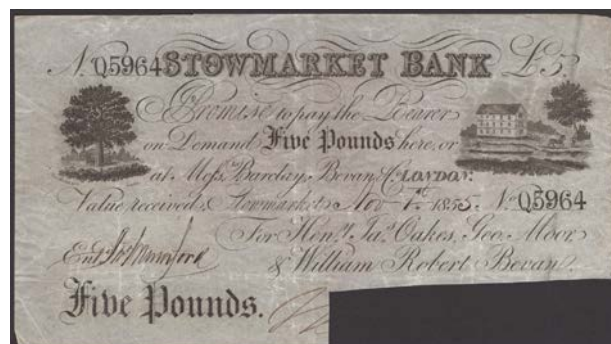 No. Q5964 STOWMARKET BANK £5.
Promise to pay the Bearer
on Demand Five Pounds here, or
at Messrs. Barclay, Bevan & Co. LONDON.
Value received, Stowmarket, Nov 1st 1855. No. Q5964
For Heny. Jas. Oakes, Geo. Moor,
& William Robert Bevan.
Entd.
Five Pounds.